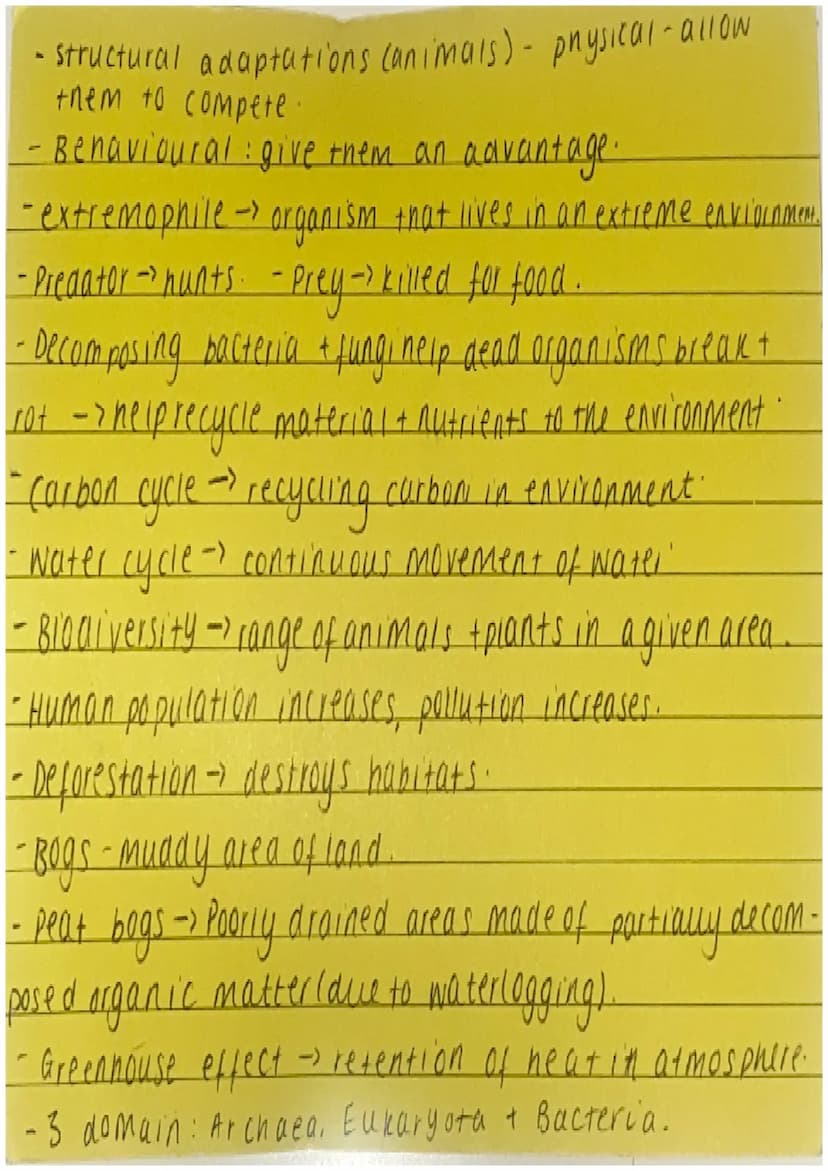 - structural adaptations (animals) - physical - allow
them to compete.
- Behavioural : give them an advantage.
- extremophile -> organism that lives in an extreme enviornment.
- Predator -> hunts. - Prey -> killed for food.
- Decomposing bacteria + fungi help dead organisms break +
rot -> help recycle material + nutrients to the environment.
- Carbon cycle -> recycling carbon in environment.
- Water cycle -> continuous movement of water.
- Biodiversity -> range of animals + plants in a given area.
- Human population increases, pollution increases.
- Deforestation -> destroys habitats.
- Bogs - muddy area of land.
- Peat bogs -> Poorly drained areas made of partially decom-
posed organic matter (due to waterlogging).
- Greenhouse effect -> retention of heat in atmosphere.
- 3 domain: Archaea, Eukaryota + Bacteria.